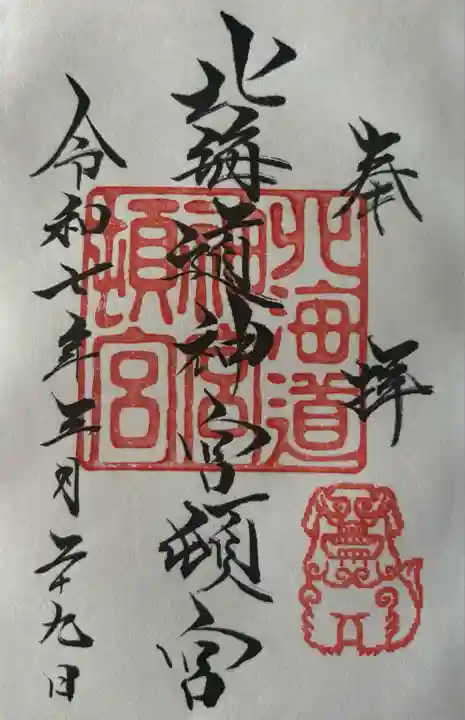 奉拝
北海道神宮頓宮
令和七年三月二十九日
北海道
神宮
頓宮